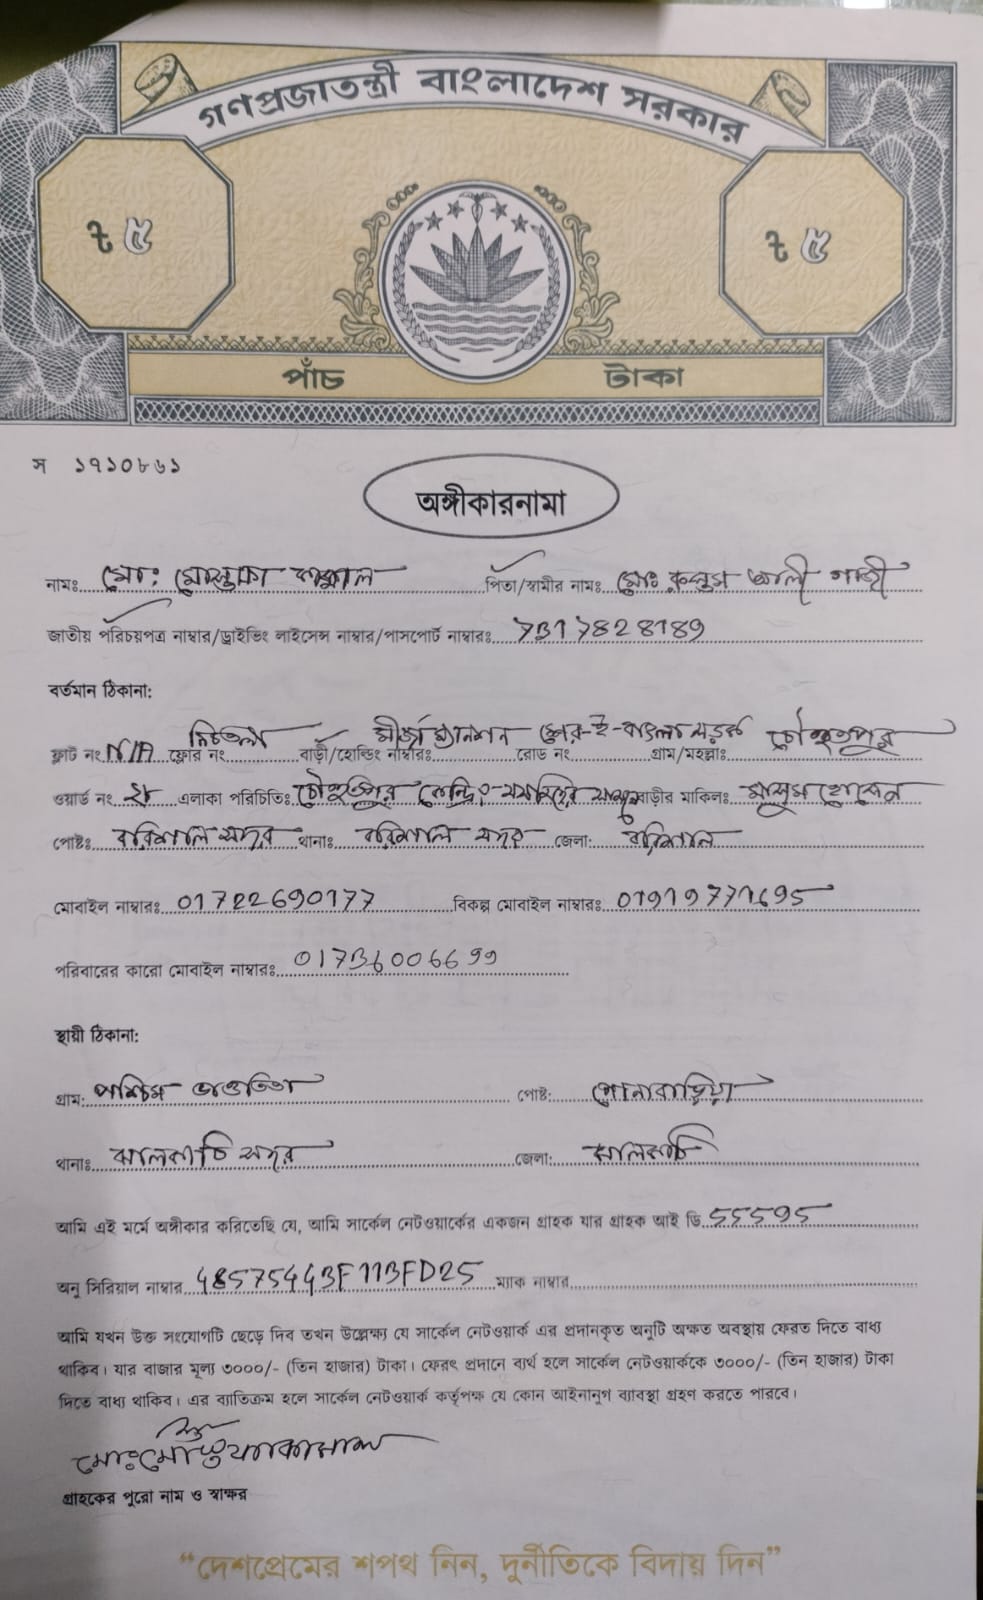 গণপ্রজাতন্ত্রী বাংলাদেশ সরকার
৳ ৫ ৳ ৫
পাঁচ টাকা
স ১৭১০৮৬১
অঙ্গীকারনামা
নামঃ মোঃ মোস্তফা কামাল পিতা/স্বামীর নাম: মোঃ আলী গাজী
জাতীয় পরিচয়পত্র নাম্বার/ড্রাইভিং লাইসেন্স নাম্বার/পাসপোর্ট নাম্বারঃ 7317828189
বর্তমান ঠিকানা:
ফ্লাট নং N/A ফ্লোর নং নিচতলা বাড়ী/হোল্ডিং নাম্বার: মীর্জা ম্যানশন রোড নং শের-ই-বাংলা সড়ক গ্রাম/মহল্লা:
ওয়ার্ড নং এলাকা পরিচিতি: বাড়ীর মালিক:
পোষ্টঃ বরিশাল সদর থানাঃ বরিশাল সদর জেলা: বরিশাল
মোবাইল নাম্বারঃ 01722690177 বিকল্প মোবাইল নাম্বারঃ 01919771695
পরিবারের কারো মোবাইল নাম্বারঃ 01736006699
স্থায়ী ঠিকানা:
গ্রাম: পশ্চিম পোষ্ট:
থানাঃ ঝালকাঠি সদর জেলা: ঝালকাঠি
আমি এই মর্মে অঙ্গীকার করিতেছি যে, আমি সার্কেল নেটওয়ার্কের একজন গ্রাহক যার গ্রাহক আই ডি 55595
অনু সিরিয়াল নাম্বার 48575443F113FD25 ম্যাক নাম্বার
আমি যখন উক্ত সংযোগটি ছেড়ে দিব তখন উল্লেক্ষ্য যে সার্কেল নেটওয়ার্ক এর প্রদানকৃত অনুটি অক্ষত অবস্থায় ফেরত দিতে বাধ্য
থাকিব। যার বাজার মূল্য ৩০০০/- (তিন হাজার) টাকা। ফেরৎ প্রদানে ব্যর্থ হলে সার্কেল নেটওয়ার্ককে ৩০০০/- (তিন হাজার) টাকা
দিতে বাধ্য থাকিব। এর ব্যাতিক্রম হলে সার্কেল নেটওয়ার্ক কর্তৃপক্ষ যে কোন আইনানুগ ব্যাবস্থা গ্রহণ করতে পারবে।
মোঃ মোস্তফা কামাল
গ্রাহকের পুরো নাম ও স্বাক্ষর
“দেশপ্রেমের শপথ নিন, দুর্নীতিকে বিদায় দিন”